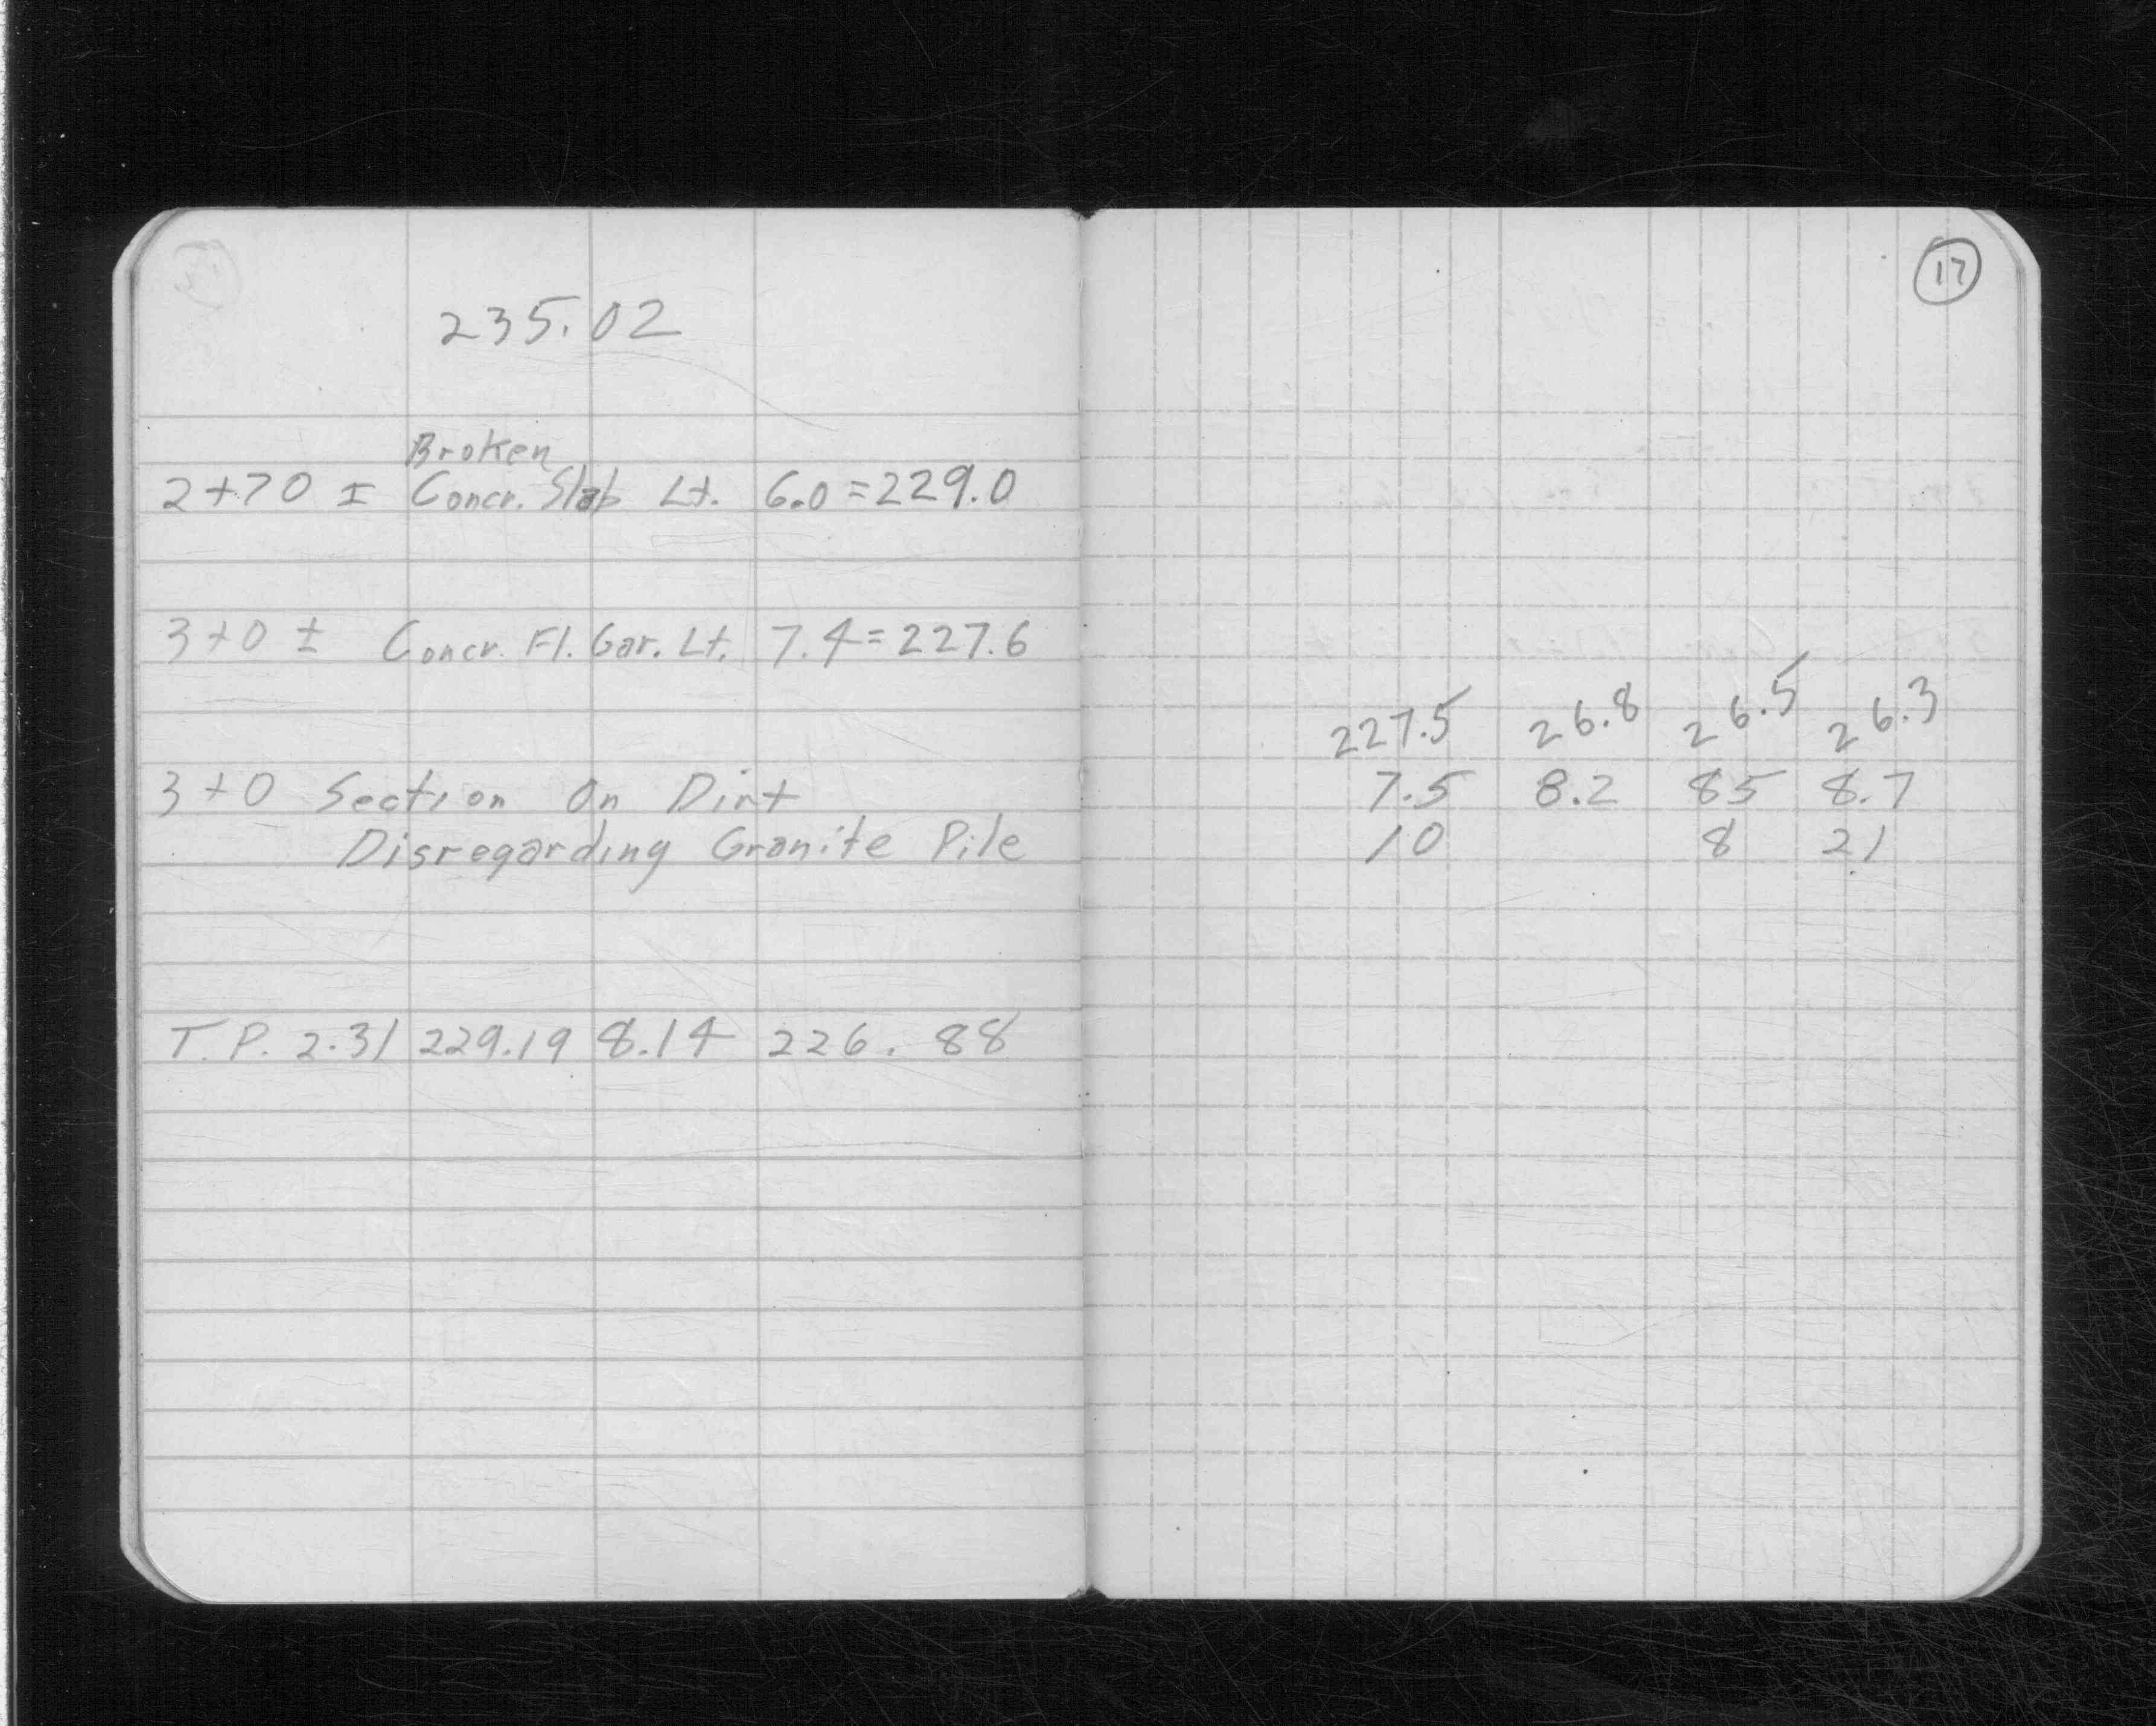 235.02
Broken
2+70 ± Concr. Slab Lt. 6.0=229.0
3+0 ± Concr. Fl. Gar. Lt. 7.4=227.6
3+0 Section On Dirt
Disregarding Granite Pile
T.P. 2.31 229.19 8.14 226.88
17
227.5 26.8 26.5 26.3
7.5 8.2 85 8.7
10 8 21